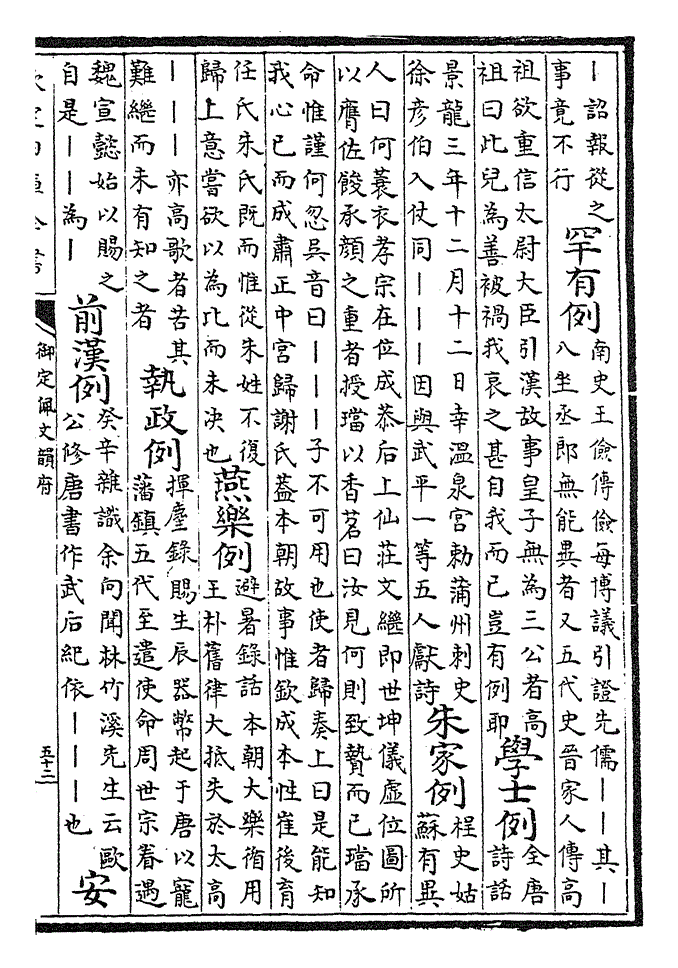 ｜詔報從之
事竟不行
罕有例
南史王儉傳儉每博議引證先儒｜｜其｜
八坐丞郎無能異者又五代史晉家人傳高
祖欲重信太尉大臣引漢故事皇子無為三公者高
祖曰此兒為善被禍我哀之甚自我而已豈有例耶
學士例
全唐
詩話
景龍三年十二月十二日幸溫泉宮勅蒲州刺史
徐彥伯入仗同｜｜｜因與武平一等五人獻詩
朱家例
桯史姑
蘇有異
人曰何蓑衣孝宗在位成恭后上仙莊文繼即世坤儀虛位圖所
以膺佐餕承顏之重者授璫以香茗曰汝見何則致贄而已璫承
命惟謹何忽吳音曰｜｜｜子不可用也使者歸奏上曰是能知
我心已而成肅正中宮歸謝氏蓋本朝故事惟欽成本性崔後育
任氏朱氏既而惟從朱姓不復
歸上意嘗欲以為比而未决也
燕樂例
避暑錄話本朝大樂循用
王朴舊律大抵失於太高
｜｜｜亦高歌者苦其
難繼而未有知之者
執政例
揮麈錄賜生辰器幣起于唐以寵
藩鎮五代至遣使命周世宗眷遇
魏宣懿始以賜之
自是｜｜為｜
前漢例
癸辛雜識余向聞林竹溪先生云歐
公修唐書作武后紀依｜｜｜也
安
御定佩文韻府
五十二